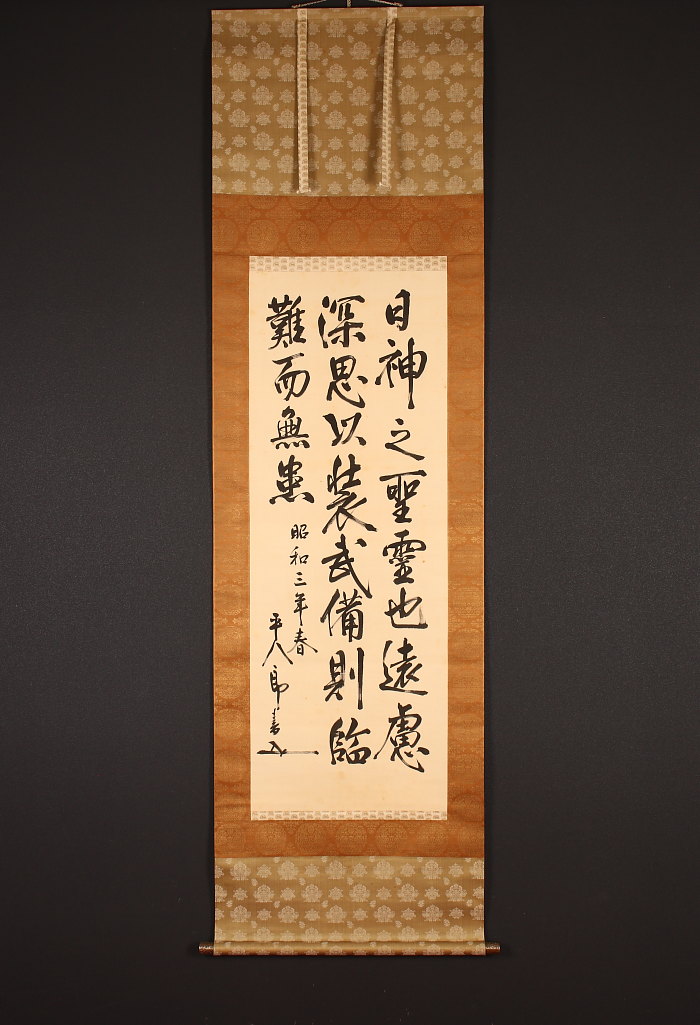 日神之聖霊也遠慮
深思以装武備則臨
難而無患
昭和三年春
平八郎書